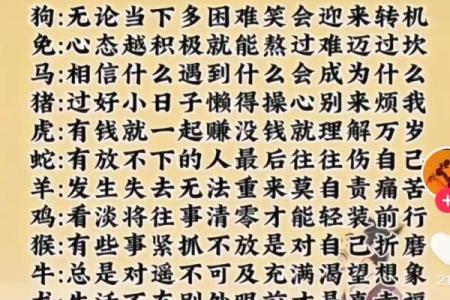 狗:无论当下多困难笑会迎来转机
兔:心态越积极就能熬过难迈过坎
马:相信什么遇到什么会成为什么
猪:过好小日子懒得操心别来烦我
虎:有钱就一起赚没钱就理解万岁
蛇:有放不下的人最后往往伤自己
羊:发生失去无法重来莫自责痛苦
鸡:看淡将往事清零才能轻装前行
猴:有些事紧抓不放是对自己折磨
牛:总是对遥不可及充满渴望想象
龙:生活不在别处眼前才是真幸福
21